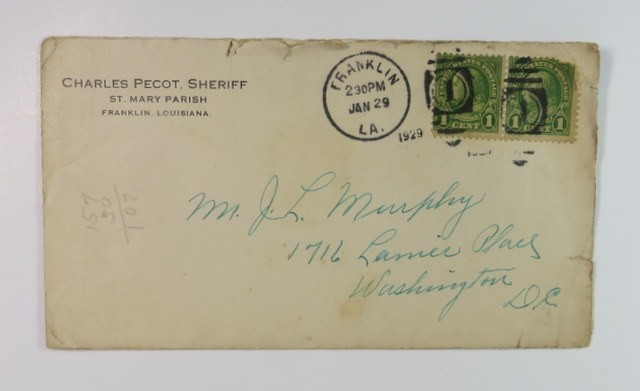 CHARLES PECOT, SHERIFF
ST. MARY PARISH
FRANKLIN, LOUISIANA.
FRANKLIN
230PM
JAN 29
LA.
1929
1 CENT 1
1 CENT 1
Mr. J. L. Murphy
1716 Lanier Place
Washington
D.C.
157
50
107